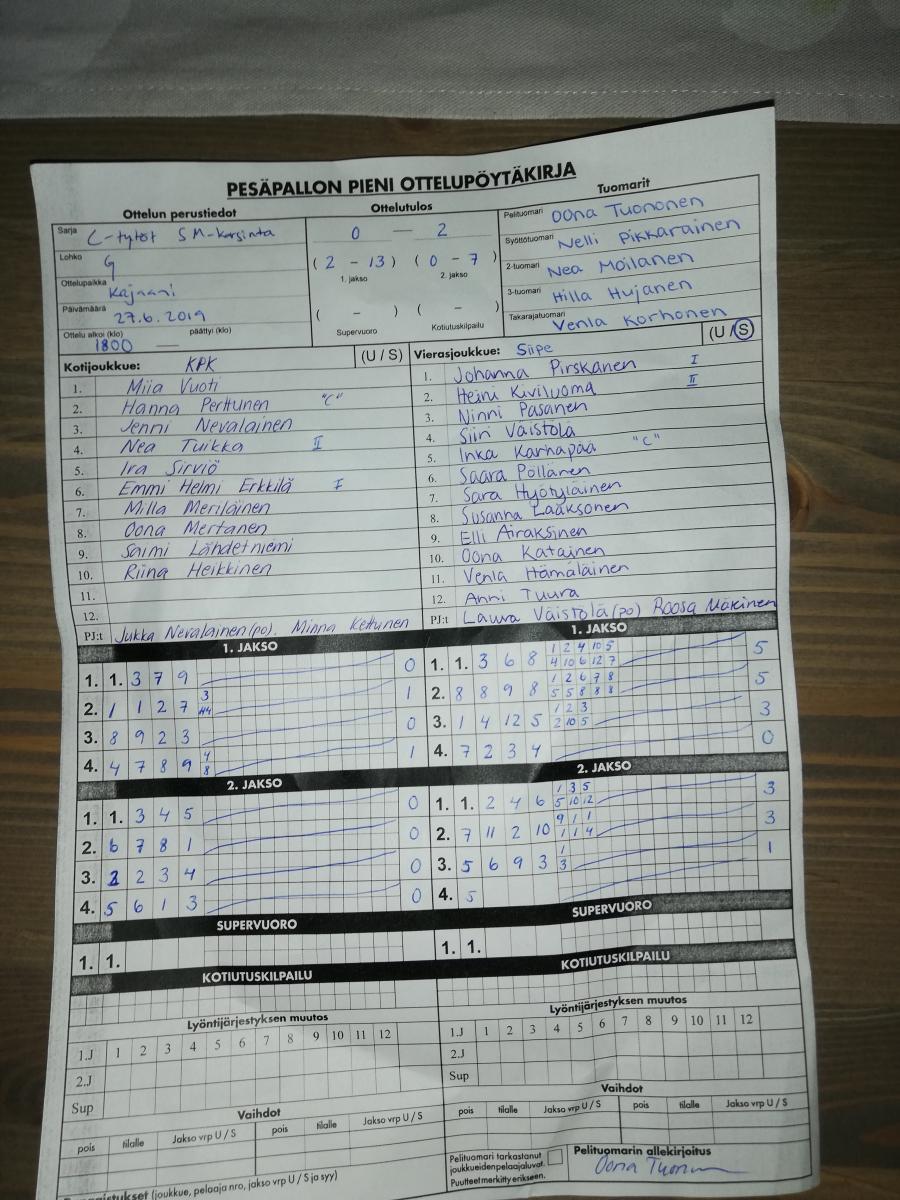 PESÄPALLON PIENI OTTELUPÖYTÄKIRJA
Ottelun perustiedot
Ottelutulos
Tuomarit
Sarja C-tytöt SM-karsinta
Lohko G
Ottelupaikka Kajaani
Päivämäärä 27.6.2019
Ottelu alkoi (klo) 1800 päättyi (klo) —
0 — 2
( 2 - 13 ) ( 0 - 7 )
1. jakso 2. jakso
( - ) ( - )
Supervuoro Kotiutuskilpailu
Pelituomari Oona Tuononen
Syöttötuomari Nelli Pikkarainen
2-tuomari Nea Moilanen
3-tuomari Hilla Hujanen
Takarajatuomari Venla Korhonen
Kotijoukkue: KPK (U / S)
1. Miia Vuoti
2. Hanna Perttunen "C"
3. Jenni Nevalainen
4. Nea Tuikka II
5. Ira Sirviö
6. Emmi Helmi Erkkilä I
7. Milla Meriläinen
8. Oona Mertanen
9. Saimi Lähdetniemi
10. Riina Heikkinen
11.
12.
PJ:t Jukka Nevalainen (po). Minna Kettunen
Vierasjoukkue: Siipe (U / S)
1. Johanna Pirskanen I
2. Heini Kiviluoma II
3. Ninni Pasanen
4. Siiri Väistölä
5. Inka Karhapää "C"
6. Saara Pöllänen
7. Sara Hyötyläinen
8. Susanna Laaksonen
9. Elli Airaksinen
10. Oona Katainen
11. Venla Hämäläinen
12. Anni Tuura
PJ:t Laura Väistölä (po) Roosa Mäkinen
1. JAKSO
1. 1. 3 7 9 0
2. 1 1 2 7 3 1
3. 8 9 2 3 0
4. 4 7 8 9 4 8 1
2. JAKSO
1. 1. 3 4 5 0
2. 6 7 8 1 0
3. 2 2 3 4 0
4. 5 6 1 3 0
SUPERVUORO
1. 1.
KOTIUTUSKILPAILU
Lyöntijärjestyksen muutos
1.J 1 2 3 4 5 6 7 8 9 10 11 12
2.J
Sup
Vaihdot
pois tilalle Jakso vrp U / S pois tilalle Jakso vrp U / S
(joukkue, pelaaja nro, jakso vrp U / S ja syy)
1. JAKSO
1. 1. 3 6 8 1 2 4 10 5 5
4 10 6 12 7
2. 8 8 9 8 1 2 6 7 8 5
5 5 8 8 8
3. 1 4 12 5 1 2 3 3
2 10 5
4. 7 2 3 4 0
2. JAKSO
1. 1. 2 4 6 1 3 5 3
5 10 12
2. 7 11 2 10 9 1 1 3
1 1 4
3. 5 6 9 3 1 1
3
4. 5
SUPERVUORO
1. 1.
KOTIUTUSKILPAILU
Lyöntijärjestyksen muutos
1.J 1 2 3 4 5 6 7 8 9 10 11 12
2.J
Sup
Vaihdot
pois tilalle Jakso vrp U / S pois tilalle Jakso vrp U / S
Pelituomari tarkastanut
joukkueidenpelaajaluvat.
Puutteet merkitty erikseen.
Pelituomarin allekirjoitus
Oona